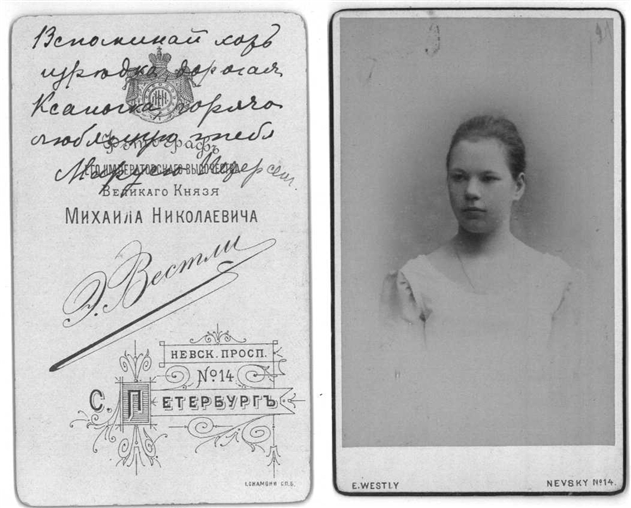 Вспоминай хоть
изрѣдка дорогая
Ксаночка горячо
любящую тебя
Марусю
Фотографъ
ЕГО ИМПЕРАТОРСКАГО ВЫСОЧЕСТВА
ВЕЛИКАГО КНЯЗЯ
МИХАИЛА НИКОЛАЕВИЧА
Э. Вестли
НЕВСК. ПРОСП.
№14
С. ПЕТЕРБУРГЪ
І.СКАМОНИ С.П.Б.
E. WESTLY
NEVSKY №14.